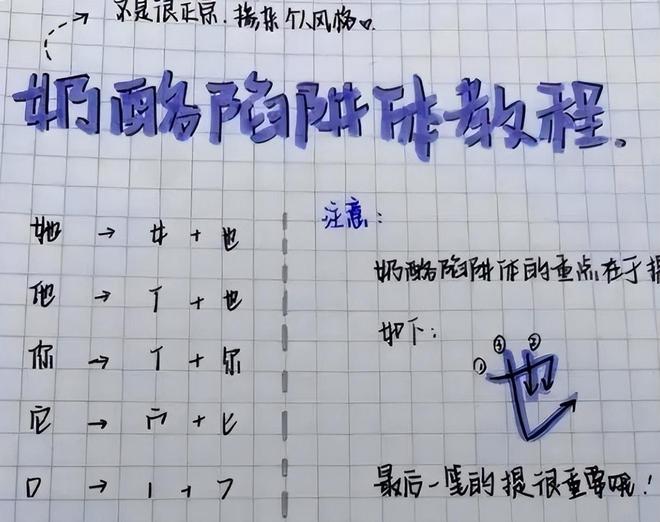 不是很正宗.掺杂个人风格。
奶酪陷阱体教程.
她 → 女 + 也
他 → 亻 + 也
你 → 亻 + 尔
它 → 宀 + 匕
口 → 丨 + 𠃌
注意:
奶酪陷阱体的重点在于提
如下:
① ③ ②
也
最后一笔的提很重要哦!